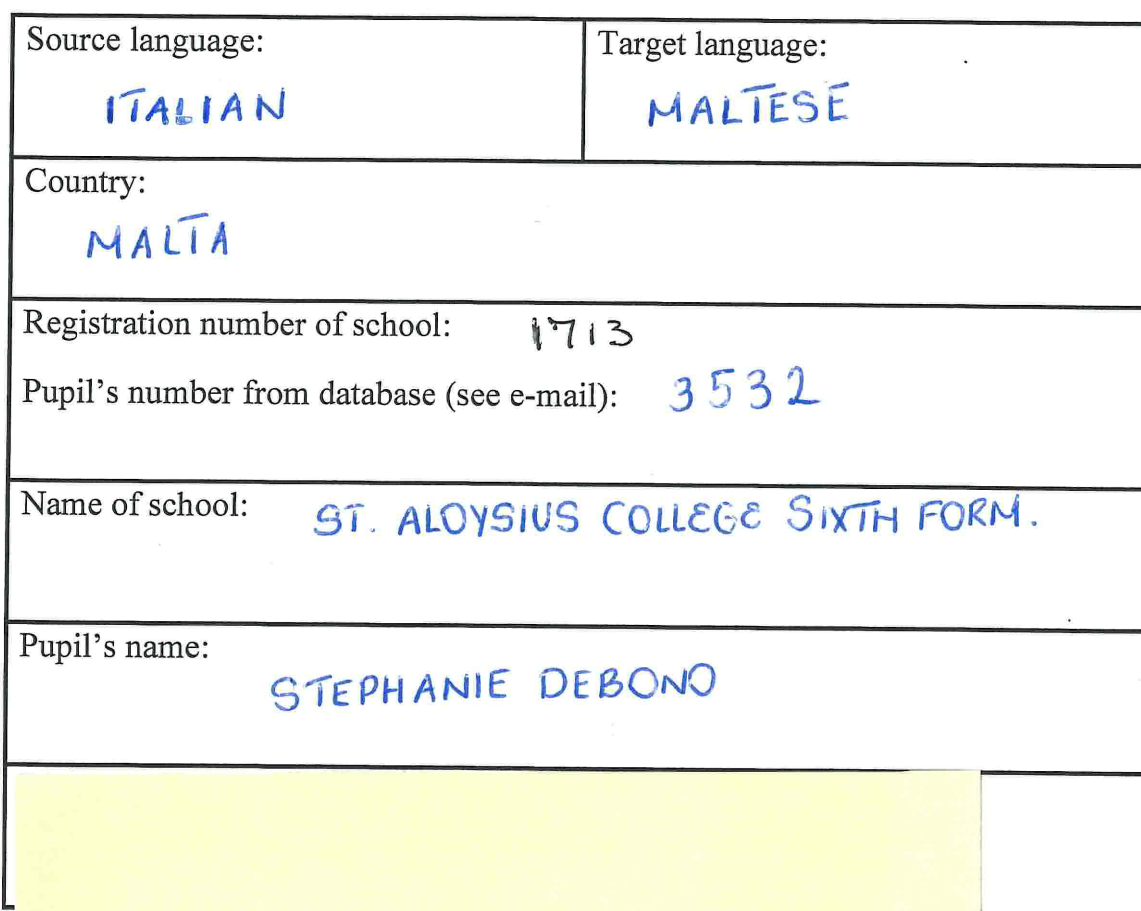 Source language:
ITALIAN
Target language:
MALTESE
Country:
MALTA
Registration number of school: 1713
Pupil's number from database (see e-mail): 3532
Name of school: ST. ALOYSIUS COLLEGE SIXTH FORM.
Pupil's name:
STEPHANIE DEBONO